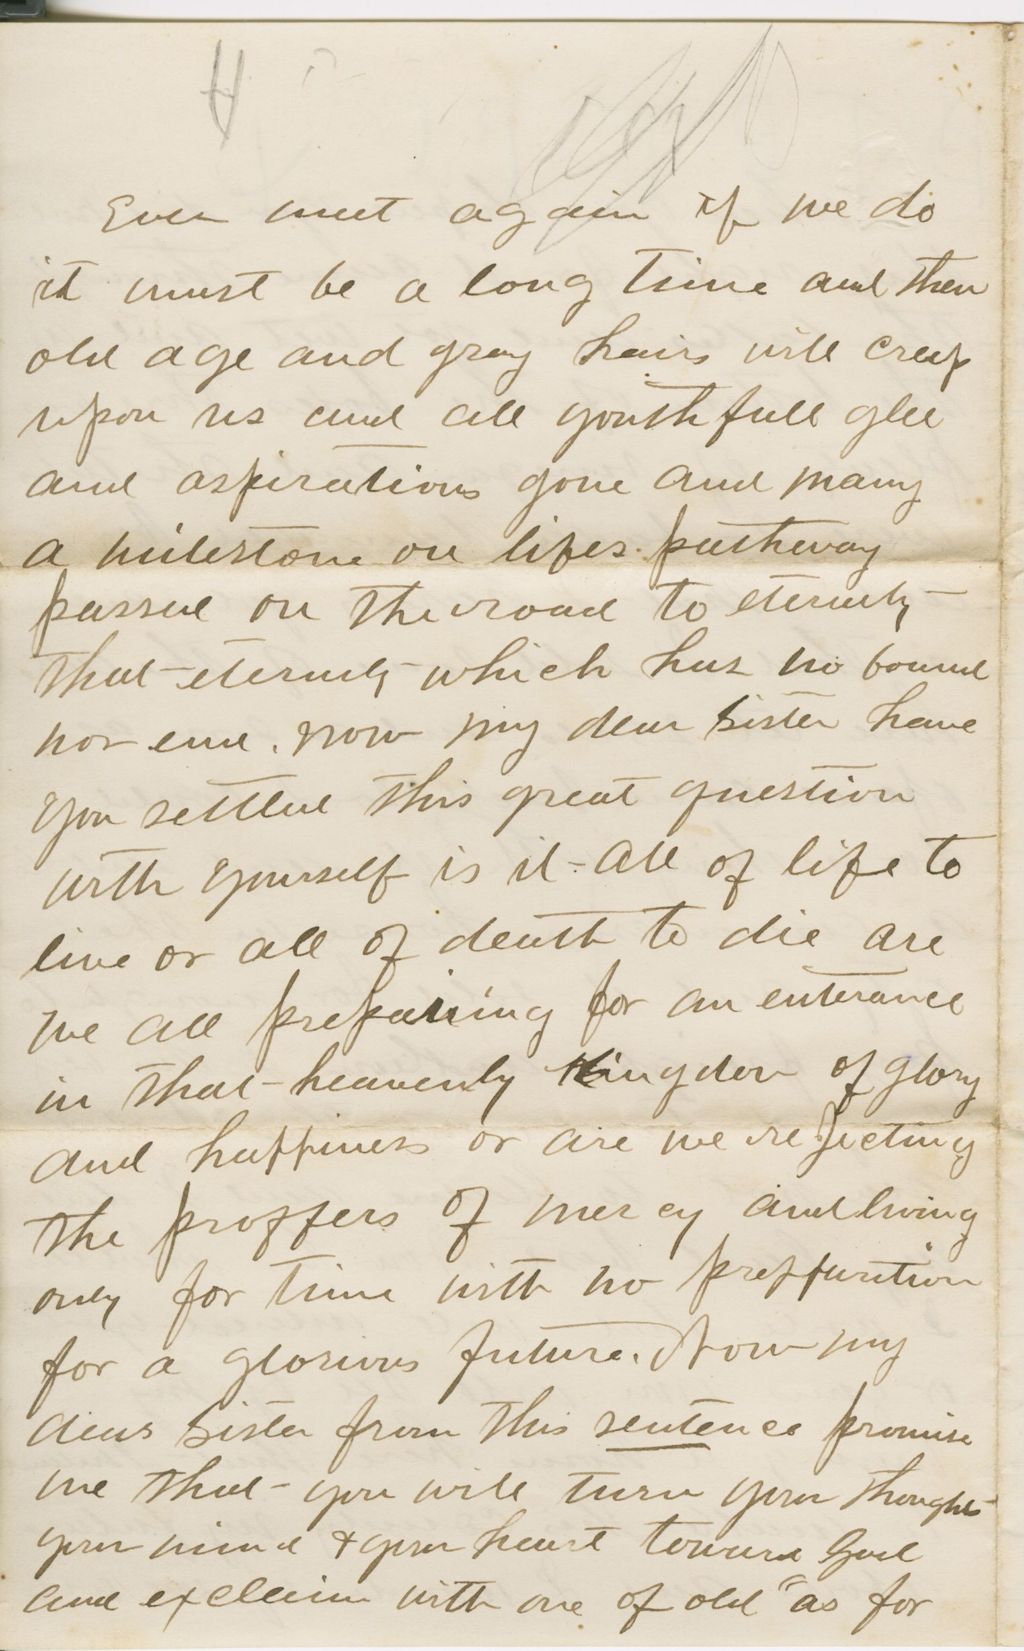 Ever meet again if we do
it must be a long time and then
old age and gray hairs will creep
upon us and all youthfull glee
and aspirations gone and many
a milestone on lifes pathway
passed on the road to eternity
that eternity which has no bound
nor end. Now my dear sister have
you settled this great question
with yourself is it all of life to
live or all of death to die are
we all prepairing for an enterance
in that heavenly Kingdom of glory
and happiness or are we rejecting
the proffers of mercy and living
only for time with no preppuration
for a glorious future. Now my
dear sister from this sentence promise
me that you will turn your thoughts
your mind & your heart toward God
and exclaim with one of old "as for